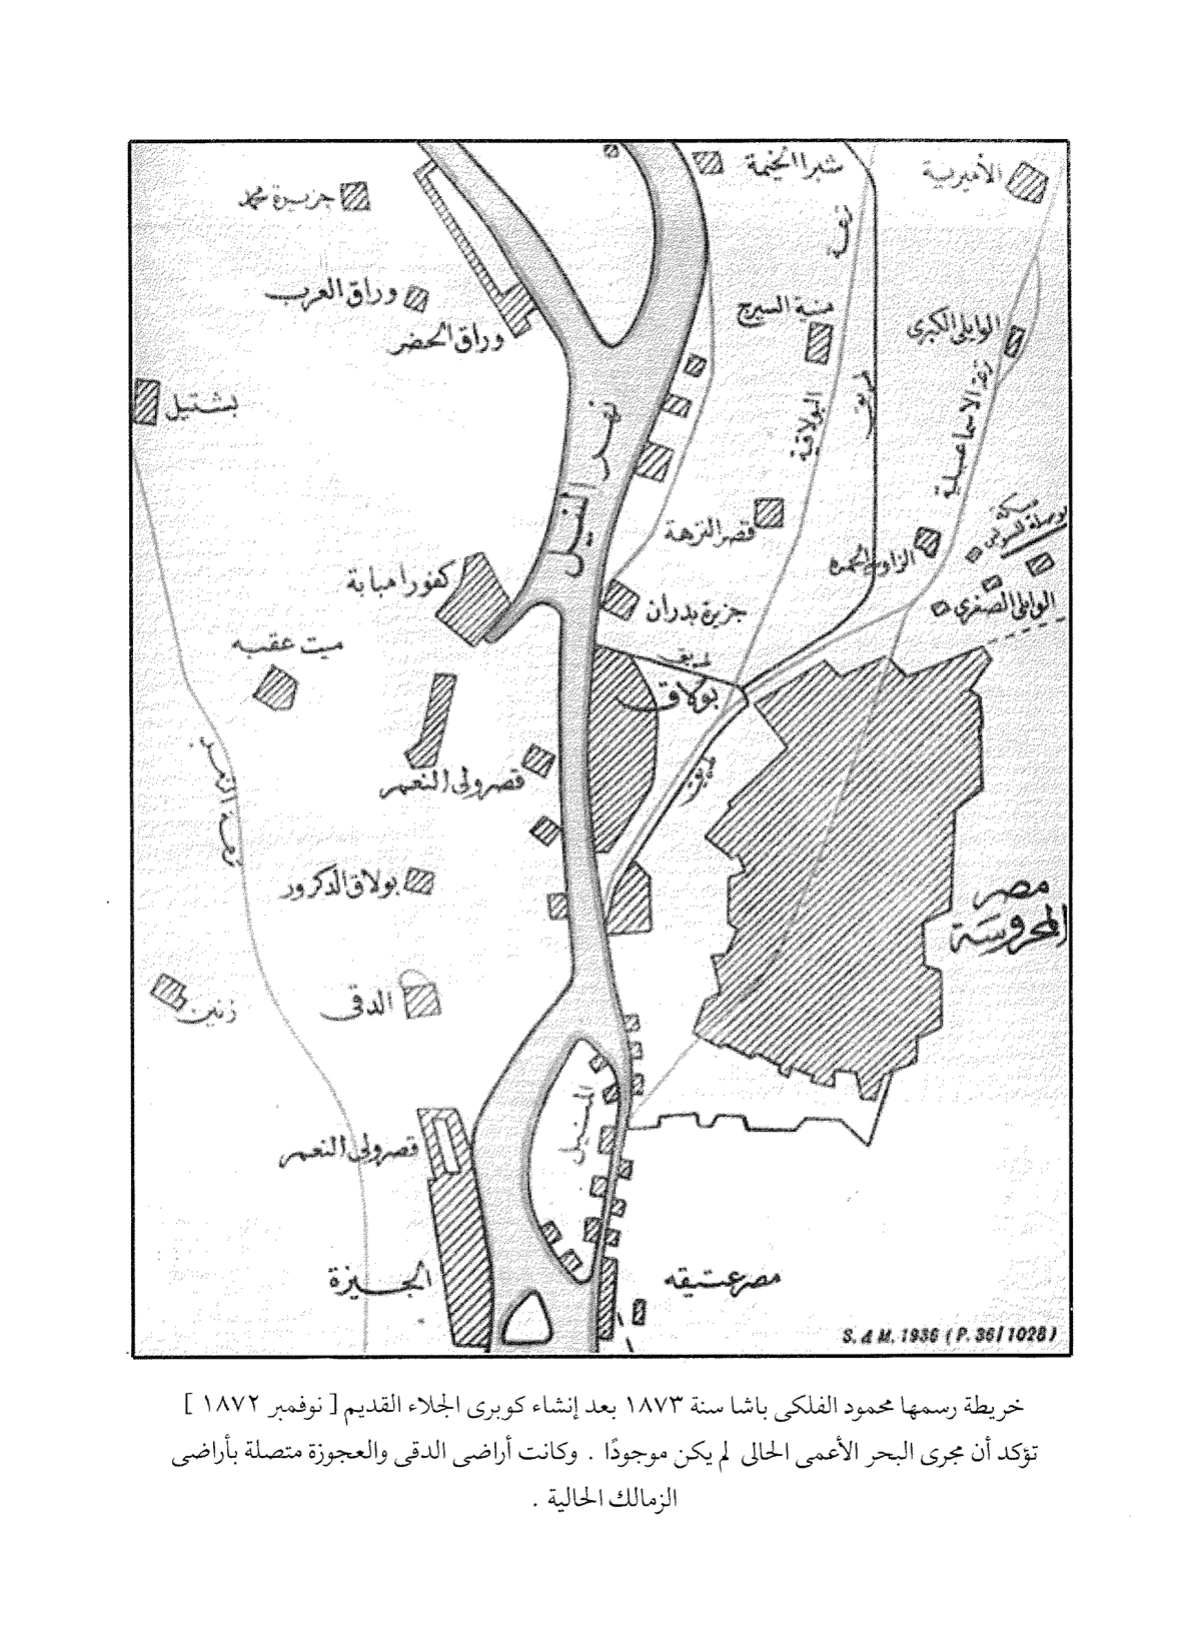 شبرا الخيمة
الأميرية
جزيرة محمد
ترعة
وراق العرب
وراق الحضر
منية السيرج
الوايلى الكبرى
بشتيل
نهر النيل
البولاقية
طريق
ترعة الاسماعيلية
قصر النزهة
الزاوية الحمرة
كفور امبابة
جزيرة بدران
الوايلى الصغرى
ميت عقبه
طريق
بولاق
قصر ولى النعم
طريق
بولاق الدكرور
مصر
المحروسة
زنين
الدقى
المنيل
قصر ولى النعم
الجيزة
مصر عتيقه
S. d M. 1936 ( P. 36/1028 )
خريطة رسمها محمود الفلكى باشا سنة ١٨٧٣ بعد إنشاء كوبرى الجلاء القديم [ نوفمبر ١٨٧٢ ]
تؤكد أن مجرى البحر الأعمى الحالى لم يكن موجودًا . وكانت أراضى الدقى والعجوزة متصلة بأراضى
الزمالك الحالية .